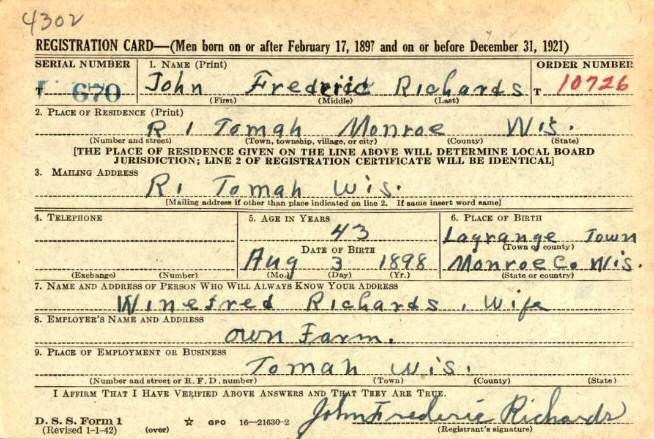 4302
REGISTRATION CARD—(Men born on or after February 17, 1897 and on or before December 31, 1921)
SERIAL NUMBER 1. NAME (Print) ORDER NUMBER
T 670 John Frederic Richards T 10726
(First) (Middle) (Last)
2. PLACE OF RESIDENCE (Print)
R 1 Tomah Monroe Wis.
(Number and street) (Town, township, village, or city) (County) (State)
[THE PLACE OF RESIDENCE GIVEN ON THE LINE ABOVE WILL DETERMINE LOCAL BOARD
JURISDICTION; LINE 2 OF REGISTRATION CERTIFICATE WILL BE IDENTICAL]
3. MAILING ADDRESS
R1 Tomah Wis.
[Mailing address if other than place indicated on line 2. If same insert word same]
4. TELEPHONE 5. AGE IN YEARS 6. PLACE OF BIRTH
43 Lagrange Town
DATE OF BIRTH (Town or county)
Aug 3 1898 Monroe Co Wis.
(Exchange) (Number) (Mo.) (Day) (Yr.) (State or country)
7. NAME AND ADDRESS OF PERSON WHO WILL ALWAYS KNOW YOUR ADDRESS
Winefred Richards, Wife
8. EMPLOYER'S NAME AND ADDRESS
own Farm.
9. PLACE OF EMPLOYMENT OR BUSINESS
Tomah Wis.
(Number and street or R. F. D. number) (Town) (County) (State)
I AFFIRM THAT I HAVE VERIFIED ABOVE ANSWERS AND THAT THEY ARE TRUE.
D. S. S. Form 1
(Revised 1-1-42) (over) ☆ GPO 16—21630-2 John Frederic Richards
(Registrant's signature)